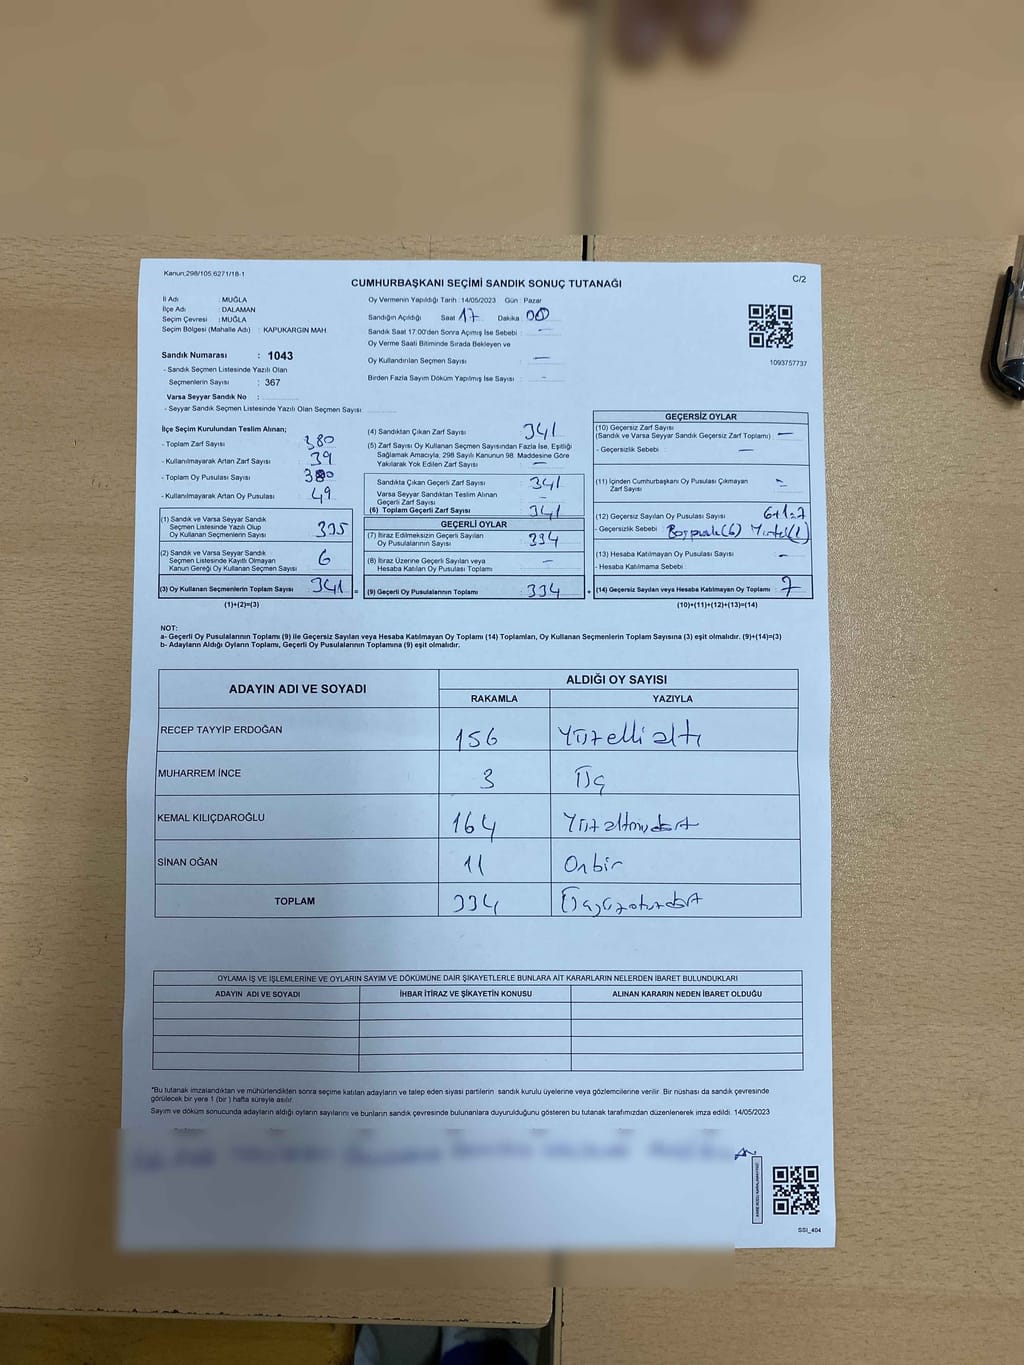 Kanun;298/105;6271/18-1
C/2
CUMHURBAŞKANI SEÇİMİ SANDIK SONUÇ TUTANAĞI
İl Adı : MUĞLA
İlçe Adı : DALAMAN
Seçim Çevresi : MUĞLA
Seçim Bölgesi (Mahalle Adı) : KAPUKARGIN MAH
Sandık Numarası : 1043
- Sandık Seçmen Listesinde Yazılı Olan
Seçmenlerin Sayısı : 367
Varsa Seyyar Sandık No :
- Seyyar Sandık Seçmen Listesinde Yazılı Olan Seçmen Sayısı:
Oy Vermenin Yapıldığı Tarih : 14/05/2023 Gün : Pazar
Sandığın Açıldığı Saat 17 Dakika 00
Sandık Saat 17:00'den Sonra Açımış İse Sebebi : —
Oy Verme Saati Bitiminde Sırada Bekleyen ve
Oy Kullandırılan Seçmen Sayısı —
Birden Fazla Sayım Döküm Yapılmış İse Sayısı : -
1093757737
İlçe Seçim Kurulundan Teslim Alınan;
- Toplam Zarf Sayısı 380
- Kullanılmayarak Artan Zarf Sayısı 39
- Toplam Oy Pusulası Sayısı 380
- Kullanılmayarak Artan Oy Pusulası 49
(1) Sandık ve Varsa Seyyar Sandık
Seçmen Listesinde Yazılı Olup
Oy Kullanan Seçmenlerin Sayısı 335
(2) Sandık ve Varsa Seyyar Sandık
Seçmen Listesinde Kayıtlı Olmayan
Kanun Gereği Oy Kullanan Seçmen Sayısı 6
(3) Oy Kullanan Seçmenlerin Toplam Sayısı 341 =
(1)+(2)=(3)
(4) Sandıktan Çıkan Zarf Sayısı 341
(5) Zarf Sayısı Oy Kullanan Seçmen Sayısından Fazla İse, Eşitliği
Sağlamak Amacıyla, 298 Sayılı Kanunun 98. Maddesine Göre
Yakılarak Yok Edilen Zarf Sayısı —
Sandıkta Çıkan Geçerli Zarf Sayısı 341
Varsa Seyyar Sandıktan Teslim Alınan
Geçerli Zarf Sayısı -
(6) Toplam Geçerli Zarf Sayısı 341
GEÇERLİ OYLAR
(7) İtiraz Edilmeksizin Geçerli Sayılan
Oy Pusulalarının Sayısı 334
(8) İtiraz Üzerine Geçerli Sayılan veya
Hesaba Katılan Oy Pusulası Toplamı —
(9) Geçerli Oy Pusulalarının Toplamı 334 +
GEÇERSİZ OYLAR
(10) Geçersiz Zarf Sayısı
(Sandık ve Varsa Seyyar Sandık Geçersiz Zarf Toplamı) —
- Geçersizlik Sebebi : —
(11) İçinden Cumhurbaşkanı Oy Pusulası Çıkmayan
Zarf Sayısı -
(12) Geçersiz Sayılan Oy Pusulası Sayısı 6+1=7
- Geçersizlik Sebebi : Boş pusula(6) Yırtık(1)
(13) Hesaba Katılmayan Oy Pusulası Sayısı -
- Hesaba Katılmama Sebebi :
(14) Geçersiz Sayılan veya Hesaba Katılmayan Oy Toplamı 7
(10)+(11)+(12)+(13)=(14)
NOT:
a- Geçerli Oy Pusulalarının Toplamı (9) ile Geçersiz Sayılan veya Hesaba Katılmayan Oy Toplamı (14) Toplamları, Oy Kullanan Seçmenlerin Toplam Sayısına (3) eşit olmalıdır. (9)+(14)=(3)
b- Adayların Aldığı Oyların Toplamı, Geçerli Oy Pusulalarının Toplamına (9) eşit olmalıdır.
ADAYIN ADI VE SOYADI ALDIĞI OY SAYISI
RAKAMLA YAZIYLA
RECEP TAYYİP ERDOĞAN 156 Yüzelli altı
MUHARREM İNCE 3 Üç
KEMAL KILIÇDAROĞLU 164 Yüzaltmışdört
SİNAN OĞAN 11 Onbir
TOPLAM 334 Üçyüzotuzdört
OYLAMA İŞ VE İŞLEMLERİNE VE OYLARIN SAYIM VE DÖKÜMÜNE DAİR ŞİKAYETLERLE BUNLARA AİT KARARLARIN NELERDEN İBARET BULUNDUKLARI
ADAYIN ADI VE SOYADI İHBAR İTİRAZ VE ŞİKAYETİN KONUSU ALINAN KARARIN NEDEN İBARET OLDUĞU
"Bu tutanak imzalandıktan ve mühürlendikten sonra seçime katılan adayların ve talep eden siyasi partilerin sandık kurulu üyelerine veya gözlemcilerine verilir. Bir nüshası da sandık çevresinde
görülecek bir yere 1 (bir ) hafta süreyle asılır.
Sayım ve döküm sonucunda adayların aldığı oyların sayılarını ve bunların sandık çevresinde bulunanlara duyurulduğunu gösteren bu tutanak tarafımızdan düzenlenerek imza edildi. 14/05/2023
SSI_404